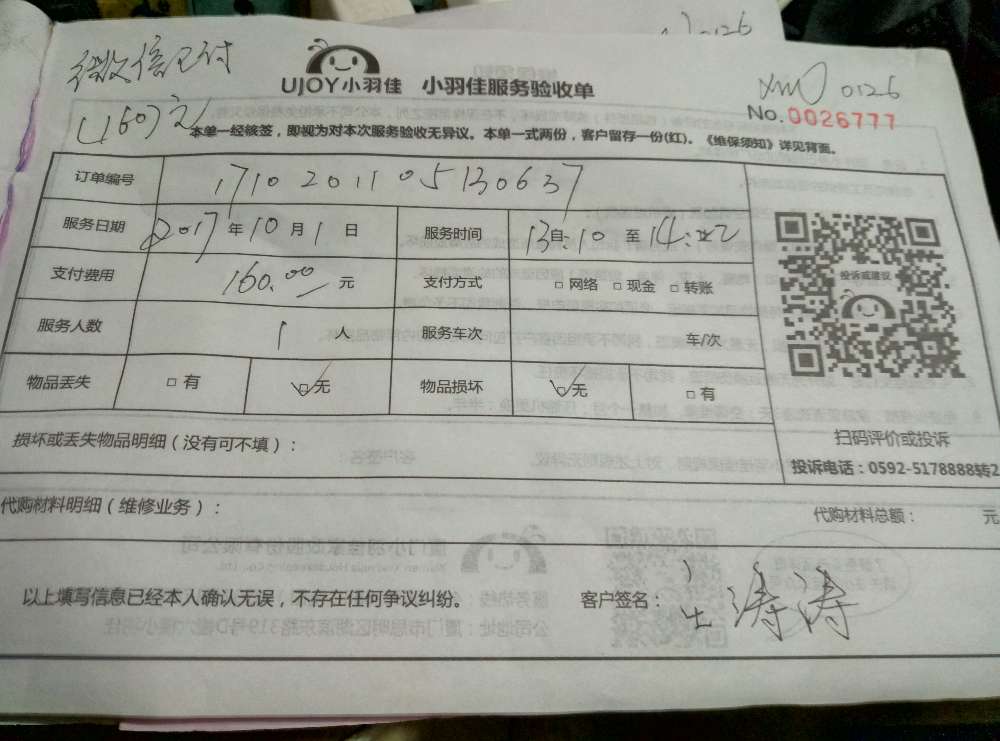 微信已付
(160)元
UJOY小羽佳 小羽佳服务验收单
XM 0126
No.0026777
本单一经核签，即视为对本次服务验收无异议。本单一式两份，客户留存一份(红)。《维保须知》详见背面。
订单编号 171020110513063​7
服务日期 2017年10月1日 服务时间 13:10至14:22
支付费用 160.00元 支付方式 □网络 □现金 □转账
投诉或建议
服务人数 1人 服务车次 车/次
物品丢失 □有 ☑无 物品损坏 ☑无 □有
扫码评价或投诉
损坏或丢失物品明细（没有可不填）：
投诉电话：0592-5178888转2
代购材料明细（维修业务）： 代购材料总额： 元
以上填写信息已经本人确认无误，不存在任何争议纠纷。 客户签名： 涛涛